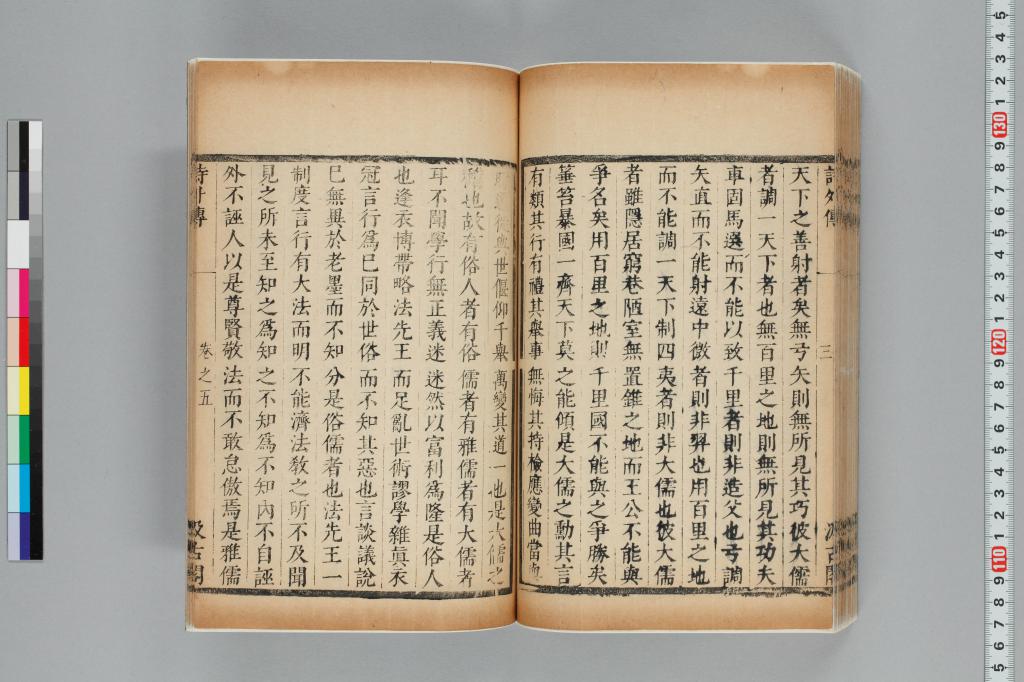 天下之善射者矣無弓矢則無所見其巧彼大儒
者調一天下者也無百里之地則無所見其功夫
車固馬選而不能以致千里者則非造父也弓調
矢直而不能射遠中微者則非羿也用百里之地
而不能調一天下制四夷者則非大儒也彼大儒
者雖隱居窮巷陋室無置錐之地而王公不能與
爭名矣用百里之地則千里國不能與之爭勝矣
箠笞暴國一齊天下莫之能傾是大儒之勳其言
有類其行有禮其舉事無悔其持檢應變曲當與
世偃仰千舉萬變其道一也是大儒之
也故有俗人者有俗儒者有雅儒者有大儒者
耳不聞學行無正義迷迷然以富利為隆是俗人
也逢衣博帶略法先王而足亂世術謬學雜其衣
冠言行爲已同於世俗而不知其惡也言談議說
已無異於老墨而不知分是俗儒者也法先王一
制度言行有大法而明不能濟法教之所不及聞
見之所未至知之爲知之不知爲不知內不自誣
外不誣人以是尊賢敬法而不敢怠傲焉是雅儒
詩外傳
卷之五
汲古閣